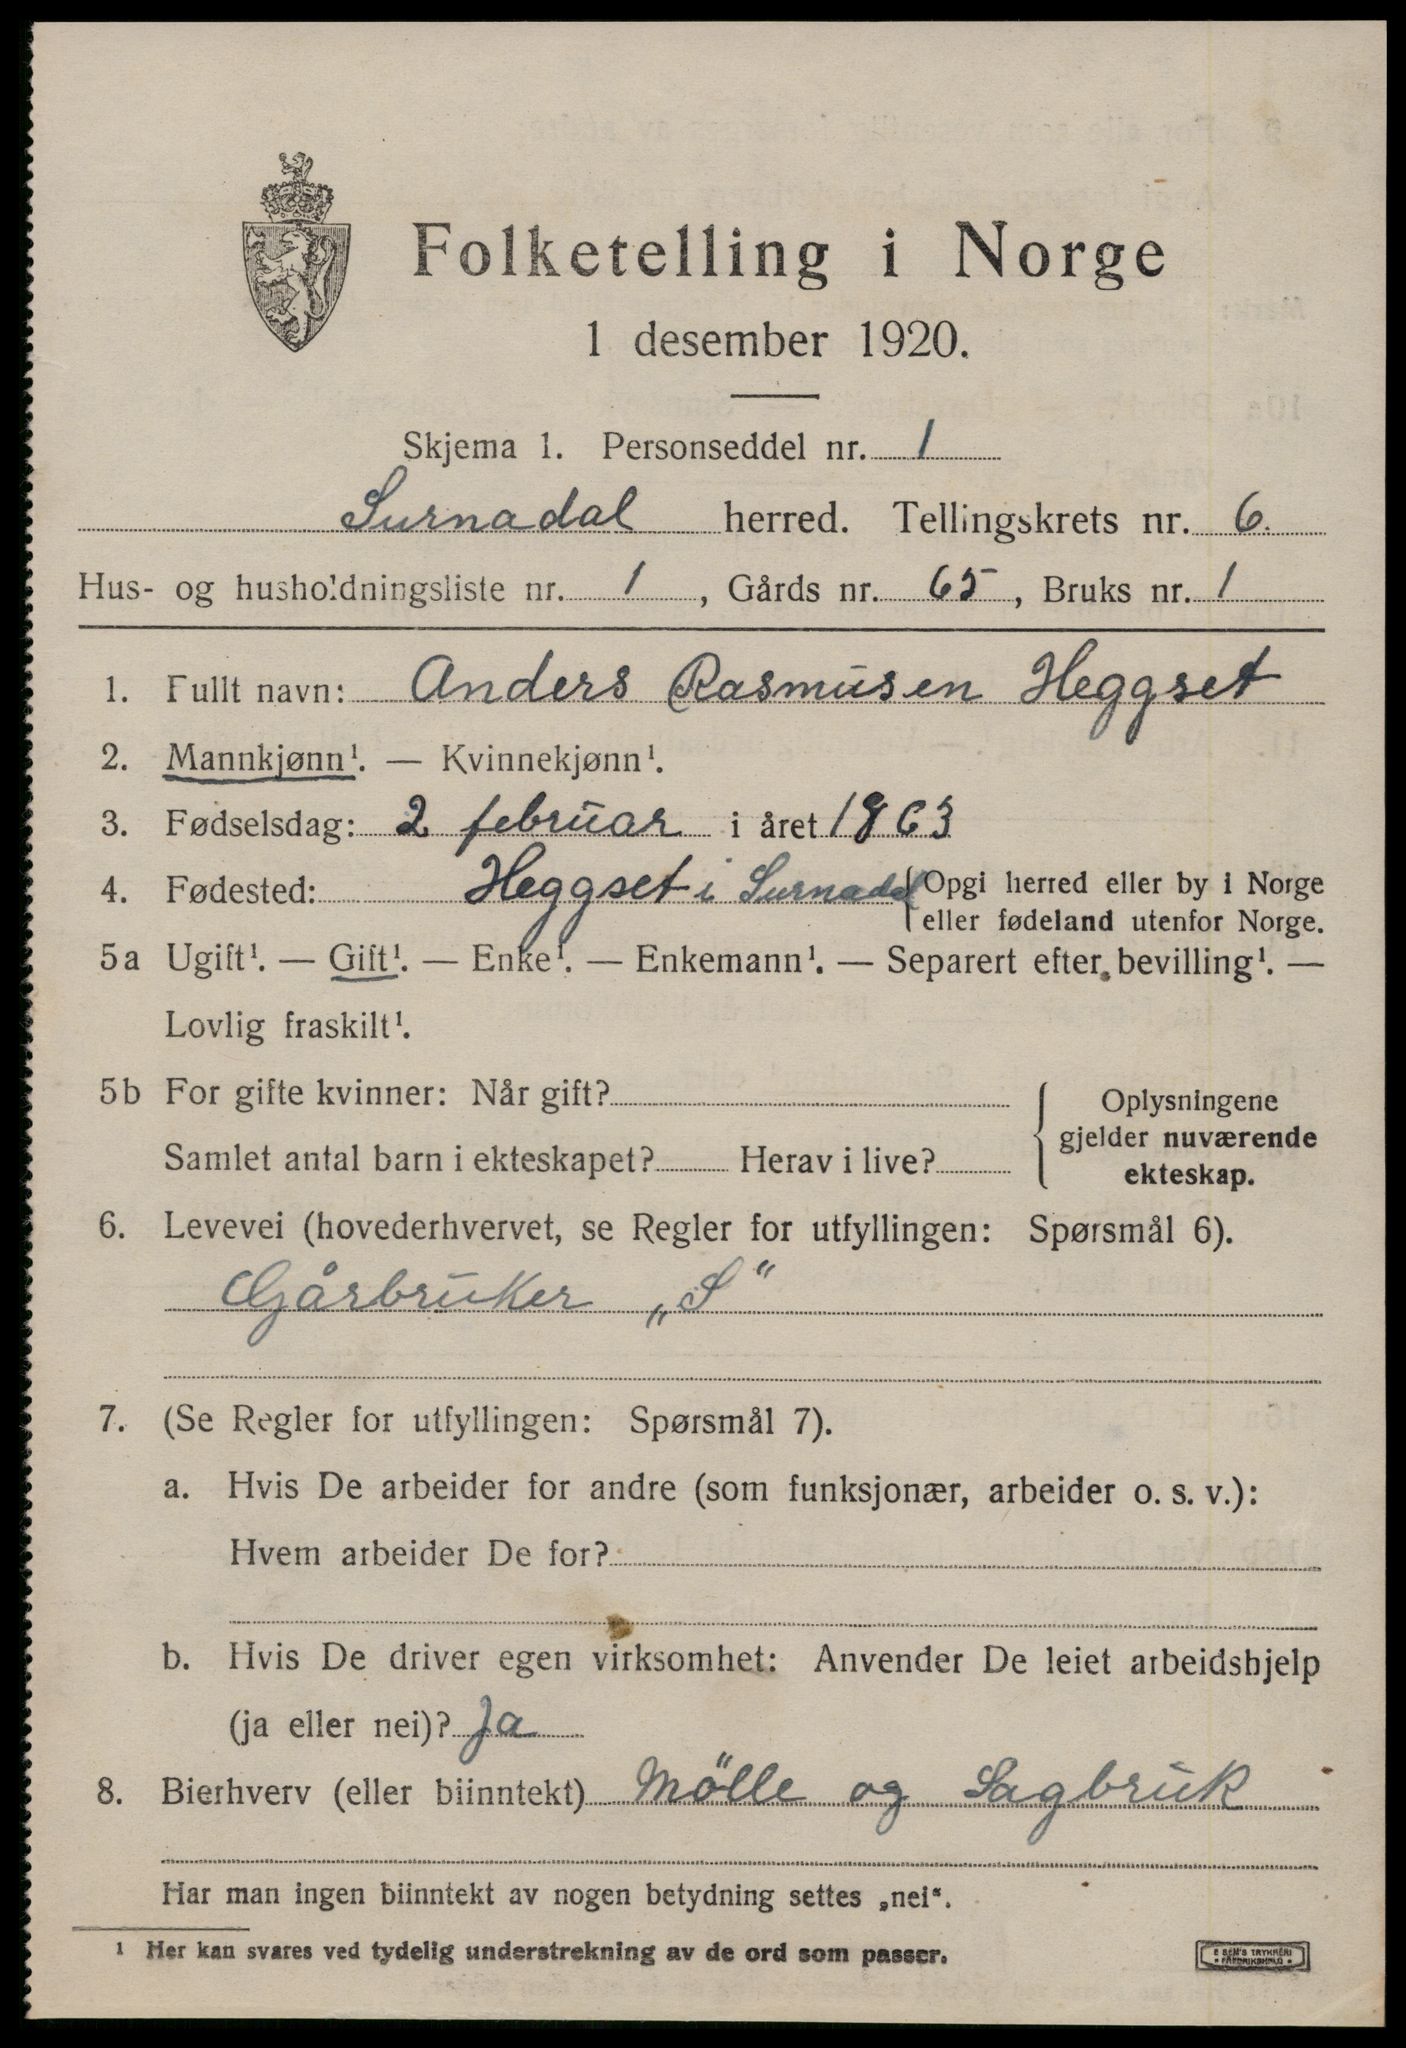 Folketelling i Norge
1 desember 1920.
Skjema 1. Personseddel nr. 1
Surnadal herred. Tellingskrets nr. 6.
Hus- og husholdningsliste nr. 1, Gårds nr. 65, Bruks nr. 1
1. Fullt navn: Anders Rasmusen Heggset
2. Mannkjønn¹. — Kvinnekjønn¹.
3. Fødselsdag: 2 februar i året 1863
4. Fødested: Heggset i Surnadal {Opgi herred eller by i Norge
eller fødeland utenfor Norge.
5a Ugift¹. — Gift¹. — Enke¹. — Enkemann¹. — Separert efter bevilling¹. —
Lovlig fraskilt¹.
5b For gifte kvinner: Når gift?
Samlet antal barn i ekteskapet? Herav i live?
Oplysningene
gjelder nuværende
ekteskap.
6. Levevei (hovederhvervet, se Regler for utfyllingen: Spørsmål 6).
Gårbruker „S“
7. (Se Regler for utfyllingen: Spørsmål 7).
a. Hvis De arbeider for andre (som funksjonær, arbeider o. s. v.):
Hvem arbeider De for?
b. Hvis De driver egen virksomhet: Anvender De leiet arbeidshjelp
(ja eller nei)? Ja
8. Bierhverv (eller biinntekt) Mölle og Sagbruk
Har man ingen biinntekt av nogen betydning settes „nei“.
¹ Her kan svares ved tydelig understrekning av de ord som passer.
E SEM'S TRYKKERI
FREDRIKSHALD